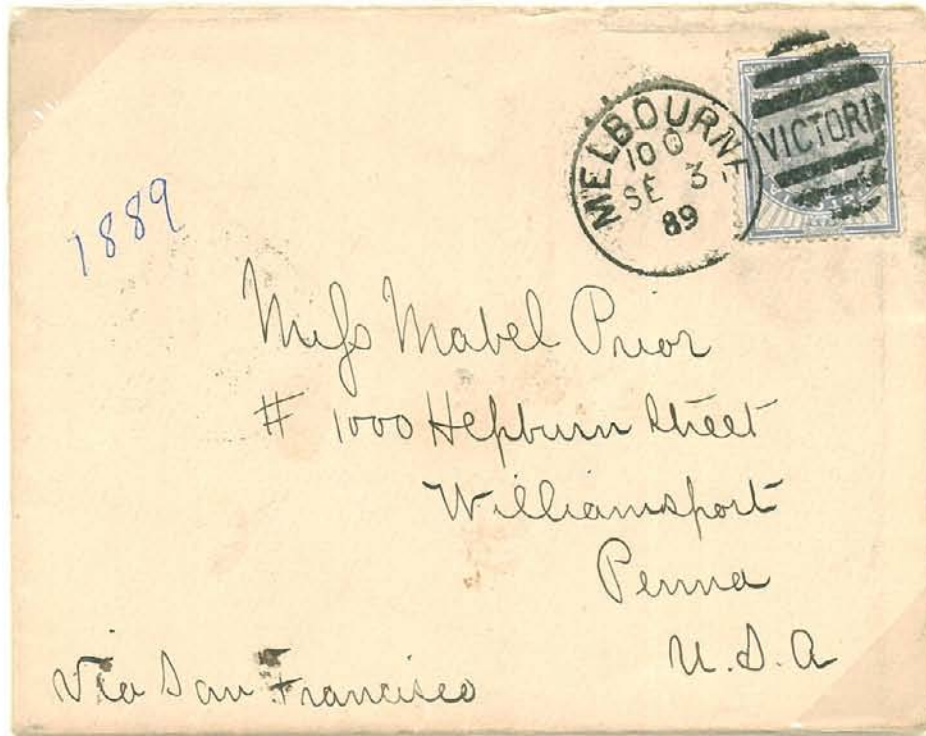 MELBOURNE
10 O
SE 3
89
VICTORI
1889
Miss Mabel Prior
# 1000 Hepburn Street
Williamsport
Penna
U.S.A
Via San Francisco